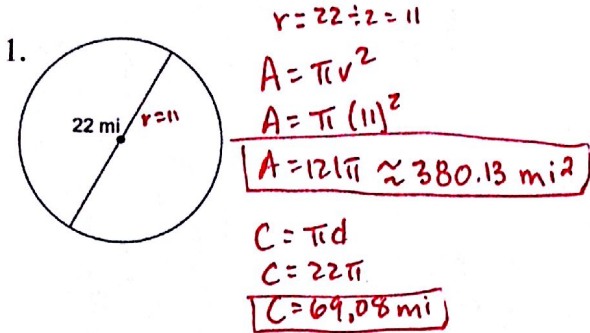 r = 22 ÷ 2 = 11
1.
22 mi r=11
A = πr²
A = π (11)²
A = 121π ≈ 380.13 mi²
C = πd
C = 22π
C = 69,08 mi